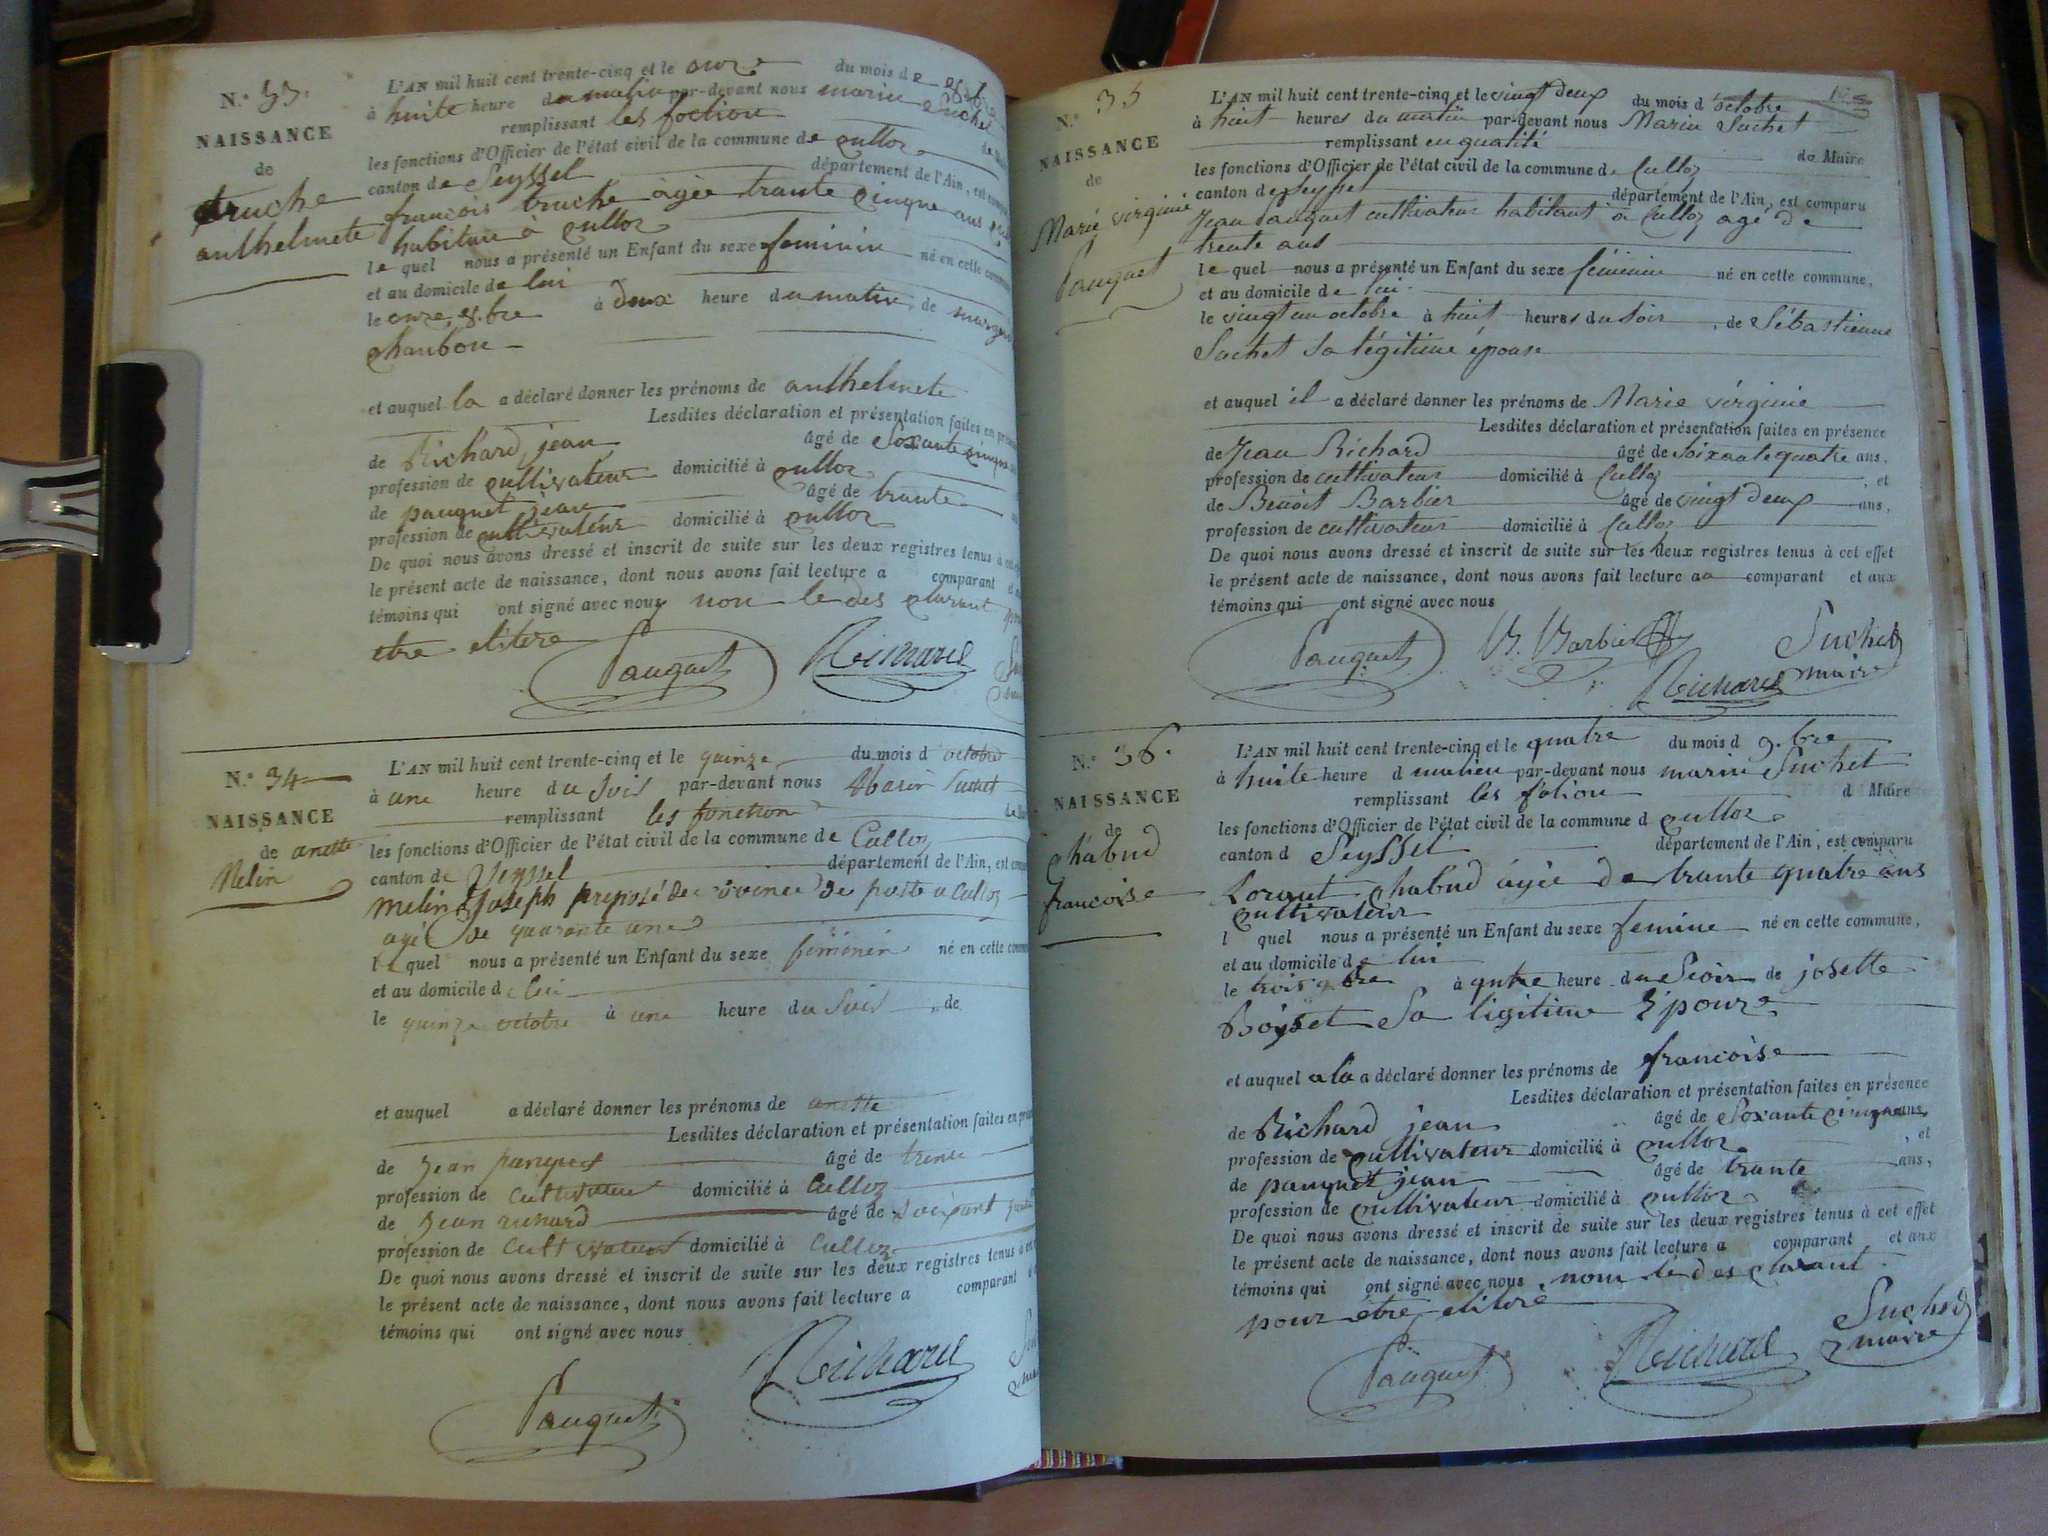 N.° 33.
NAISSANCE
de
truche
anthelmete
L'AN mil huit cent trente-cinq et le onze du mois de
à huite heure du matin par-devant nous marin Suchet
remplissant les foction
les fonctions d'Officier de l'état civil de la commune de culloz
canton de Seyssel département de l'Ain, est
françois truche âgée trante cinque ans
habitan à culloz
le quel nous a présenté un Enfant du sexe feminin né en cette
et au domicile de lui
le onze à deux heure du matin, de
chanbon
et auquel la a déclaré donner les prénoms de anthelmete
Lesdites déclaration et présentation faites en
de Richard jean âgé de Soxante cinque
profession de cultivateur domicilié à culloz
de pauquet jean âgé de trante
profession de cultivateur domicilié à culloz
De quoi nous avons dressé et inscrit de suite sur les deux registres tenus à
le présent acte de naissance, dont nous avons fait lecture a comparant
témoins qui ont signé avec nous non le des clarant
etre elitere
Pauquet Richard
N.° 34
NAISSANCE
de anette
Melin
L'AN mil huit cent trente-cinq et le quinze du mois d octobre
à une heure du Soir par-devant nous Marin Suchet
remplissant les fonction
les fonctions d'Officier de l'état civil de la commune de Culloz
canton de Seyssel département de l'Ain, est
Melin Joseph preposé de poste a Culloz
agé de quarante une
l quel nous a présenté un Enfant du sexe féminin né en cette
et au domicile d lui
le quinze octobre à une heure du Soir, de
et auquel a déclaré donner les prénoms de anette
Lesdites déclaration et présentation faites en
de Jean pauquet âgé de trente
profession de cultivateur domicilié à Culloz
de Jean richard âgé de
profession de Cultivateur domicilié à Culloz
De quoi nous avons dressé et inscrit de suite sur les deux registres tenus à
le présent acte de naissance, dont nous avons fait lecture a comparant
témoins qui ont signé avec nous
Pauquet Richard
N.° 35
NAISSANCE
de
Marie virginie
Pauquet
L'AN mil huit cent trente-cinq et le vingt deux du mois d octobre
à huit heures du matin par-devant nous Marin Suchet
remplissant en qualité de Maire
les fonctions d'Officier de l'état civil de la commune de Culloz
canton de Seyssel département de l'Ain, est comparu
Jean Pauquet cultivateur habitant à Culloz agé de
trente ans
le quel nous a présenté un Enfant du sexe féminin né en cette commune,
et au domicile de lui
le vingt un octobre à huit heures du soir, de Sébastienne
Suchet sa légitime épouse
et auquel il a déclaré donner les prénoms de Marie virginie
Lesdites déclaration et présentation faites en présence
de Jean Richard âgé de soixante quatre ans,
profession de cultivateur domicilié à Culloz, et
de Benoit Barbier âgé de vingt deux ans,
profession de cultivateur domicilié à Culloz
De quoi nous avons dressé et inscrit de suite sur les deux registres tenus à cet effet
le présent acte de naissance, dont nous avons fait lecture au comparant et aux
témoins qui ont signé avec nous
Pauquet B. Barbier Suchet
Richard maire
N.° 36.
NAISSANCE
de
chabud
francoise
L'AN mil huit cent trente-cinq et le quatre du mois d 9.bre
à huite heure d matieu par-devant nous marin Suchet
remplissant les fotion d Maire
les fonctions d'Officier de l'état civil de la commune d culloz
canton d Seyssel département de l'Ain, est comparu
Lorant chabud âgée de trante quatre ans
cultivateur
l quel nous a présenté un Enfant du sexe femine né en cette commune,
et au domicile de lui
le trois 9bre à qutre heure du Seoir de josette
Boyset Sa ligitime Epouze
et auquel a la a déclaré donner les prénoms de francoise
Lesdites déclaration et présentation faites en présence
de Richard jean âgé de Soxante cinque ans,
profession de cultivateur domicilié à culloz, et
de pauquet jean âgé de trante ans,
profession de cultivateur domicilié à culloz
De quoi nous avons dressé et inscrit de suite sur les deux registres tenus à cet effet
le présent acte de naissance, dont nous avons fait lecture a comparant et aux
témoins qui ont signé avec nous, nom le des clarant
pour être elitere
Pauquet Richard Suchet
maire